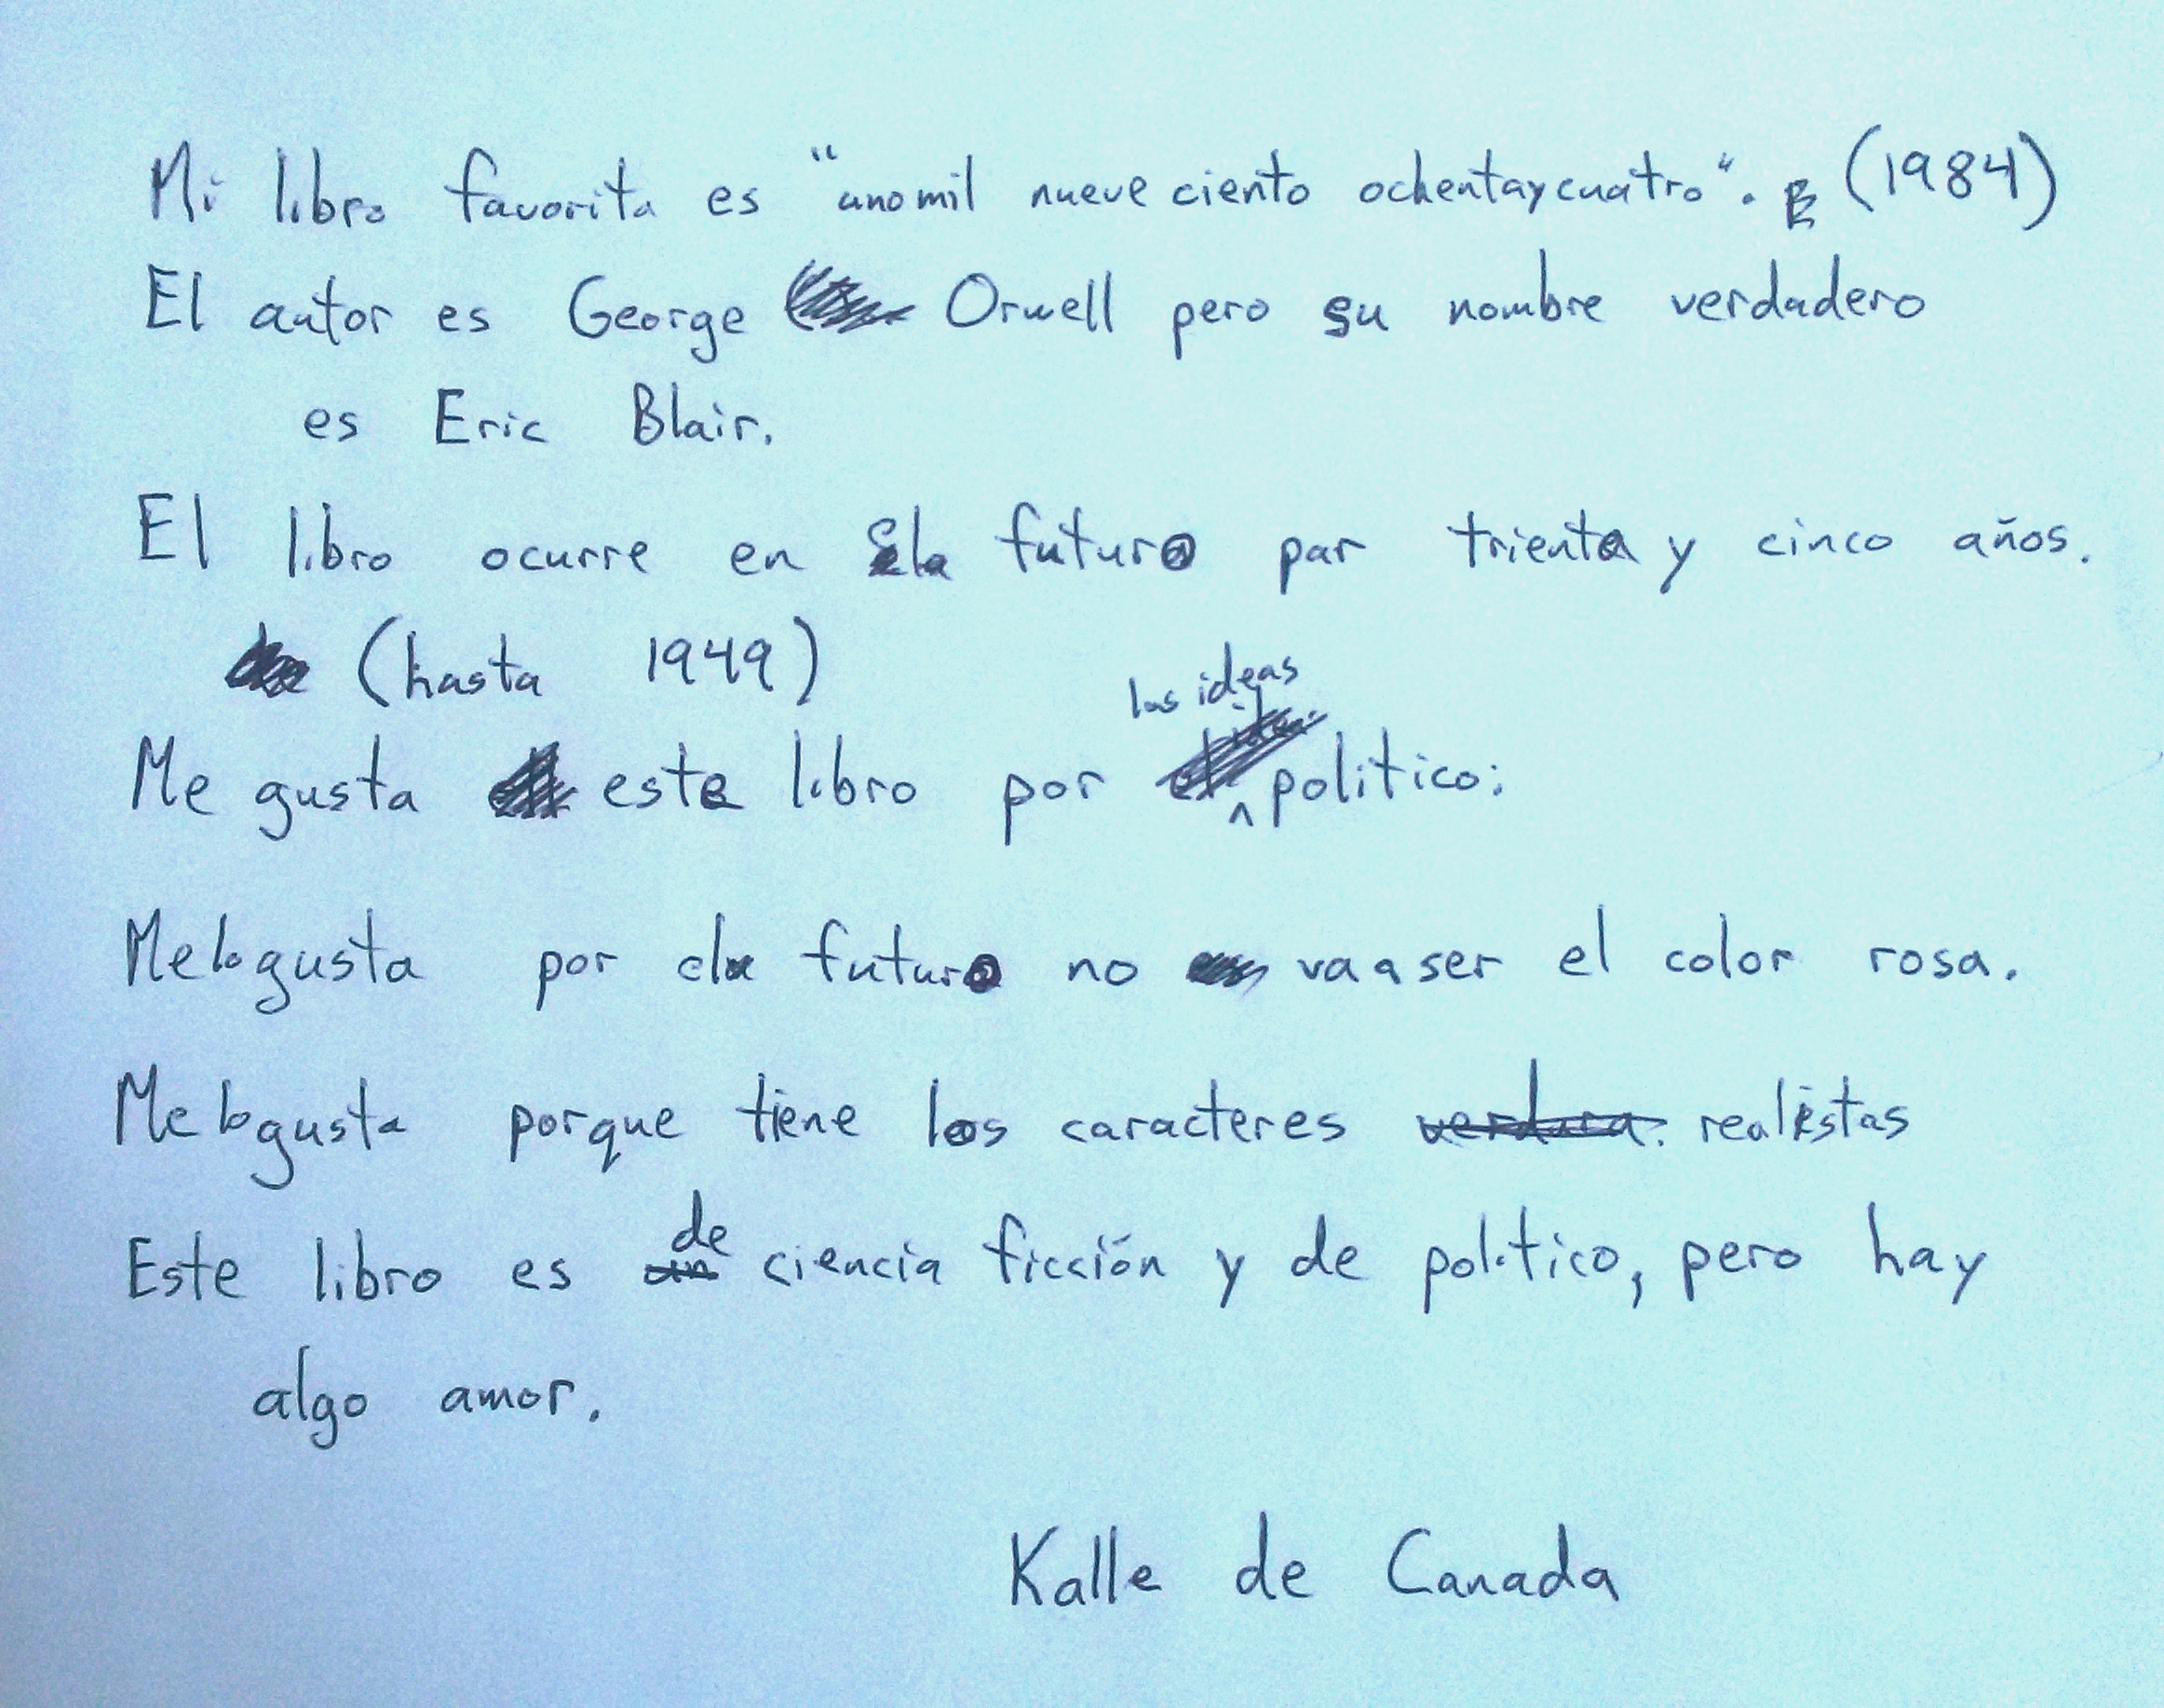 Mi libro favorita es "uno mil nueve ciento ochentaycuatro". (1984)
El autor es George Orwell pero su nombre verdadero
es Eric Blair.
El libro ocurre en el futuro par trienta y cinco años.
(hasta 1949)
las ideas
Me gusta este libro por politico:
Me lo gusta por el futuro no va a ser el color rosa.
Me lo gusta porque tiene los caracteres realistas
de
Este libro es ciencia ficción y de politico, pero hay
algo amor.
Kalle de Canada